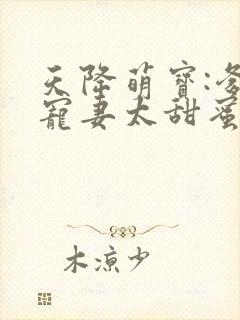 天降萌宝:爹
宠妻太甜蜜
木凉少